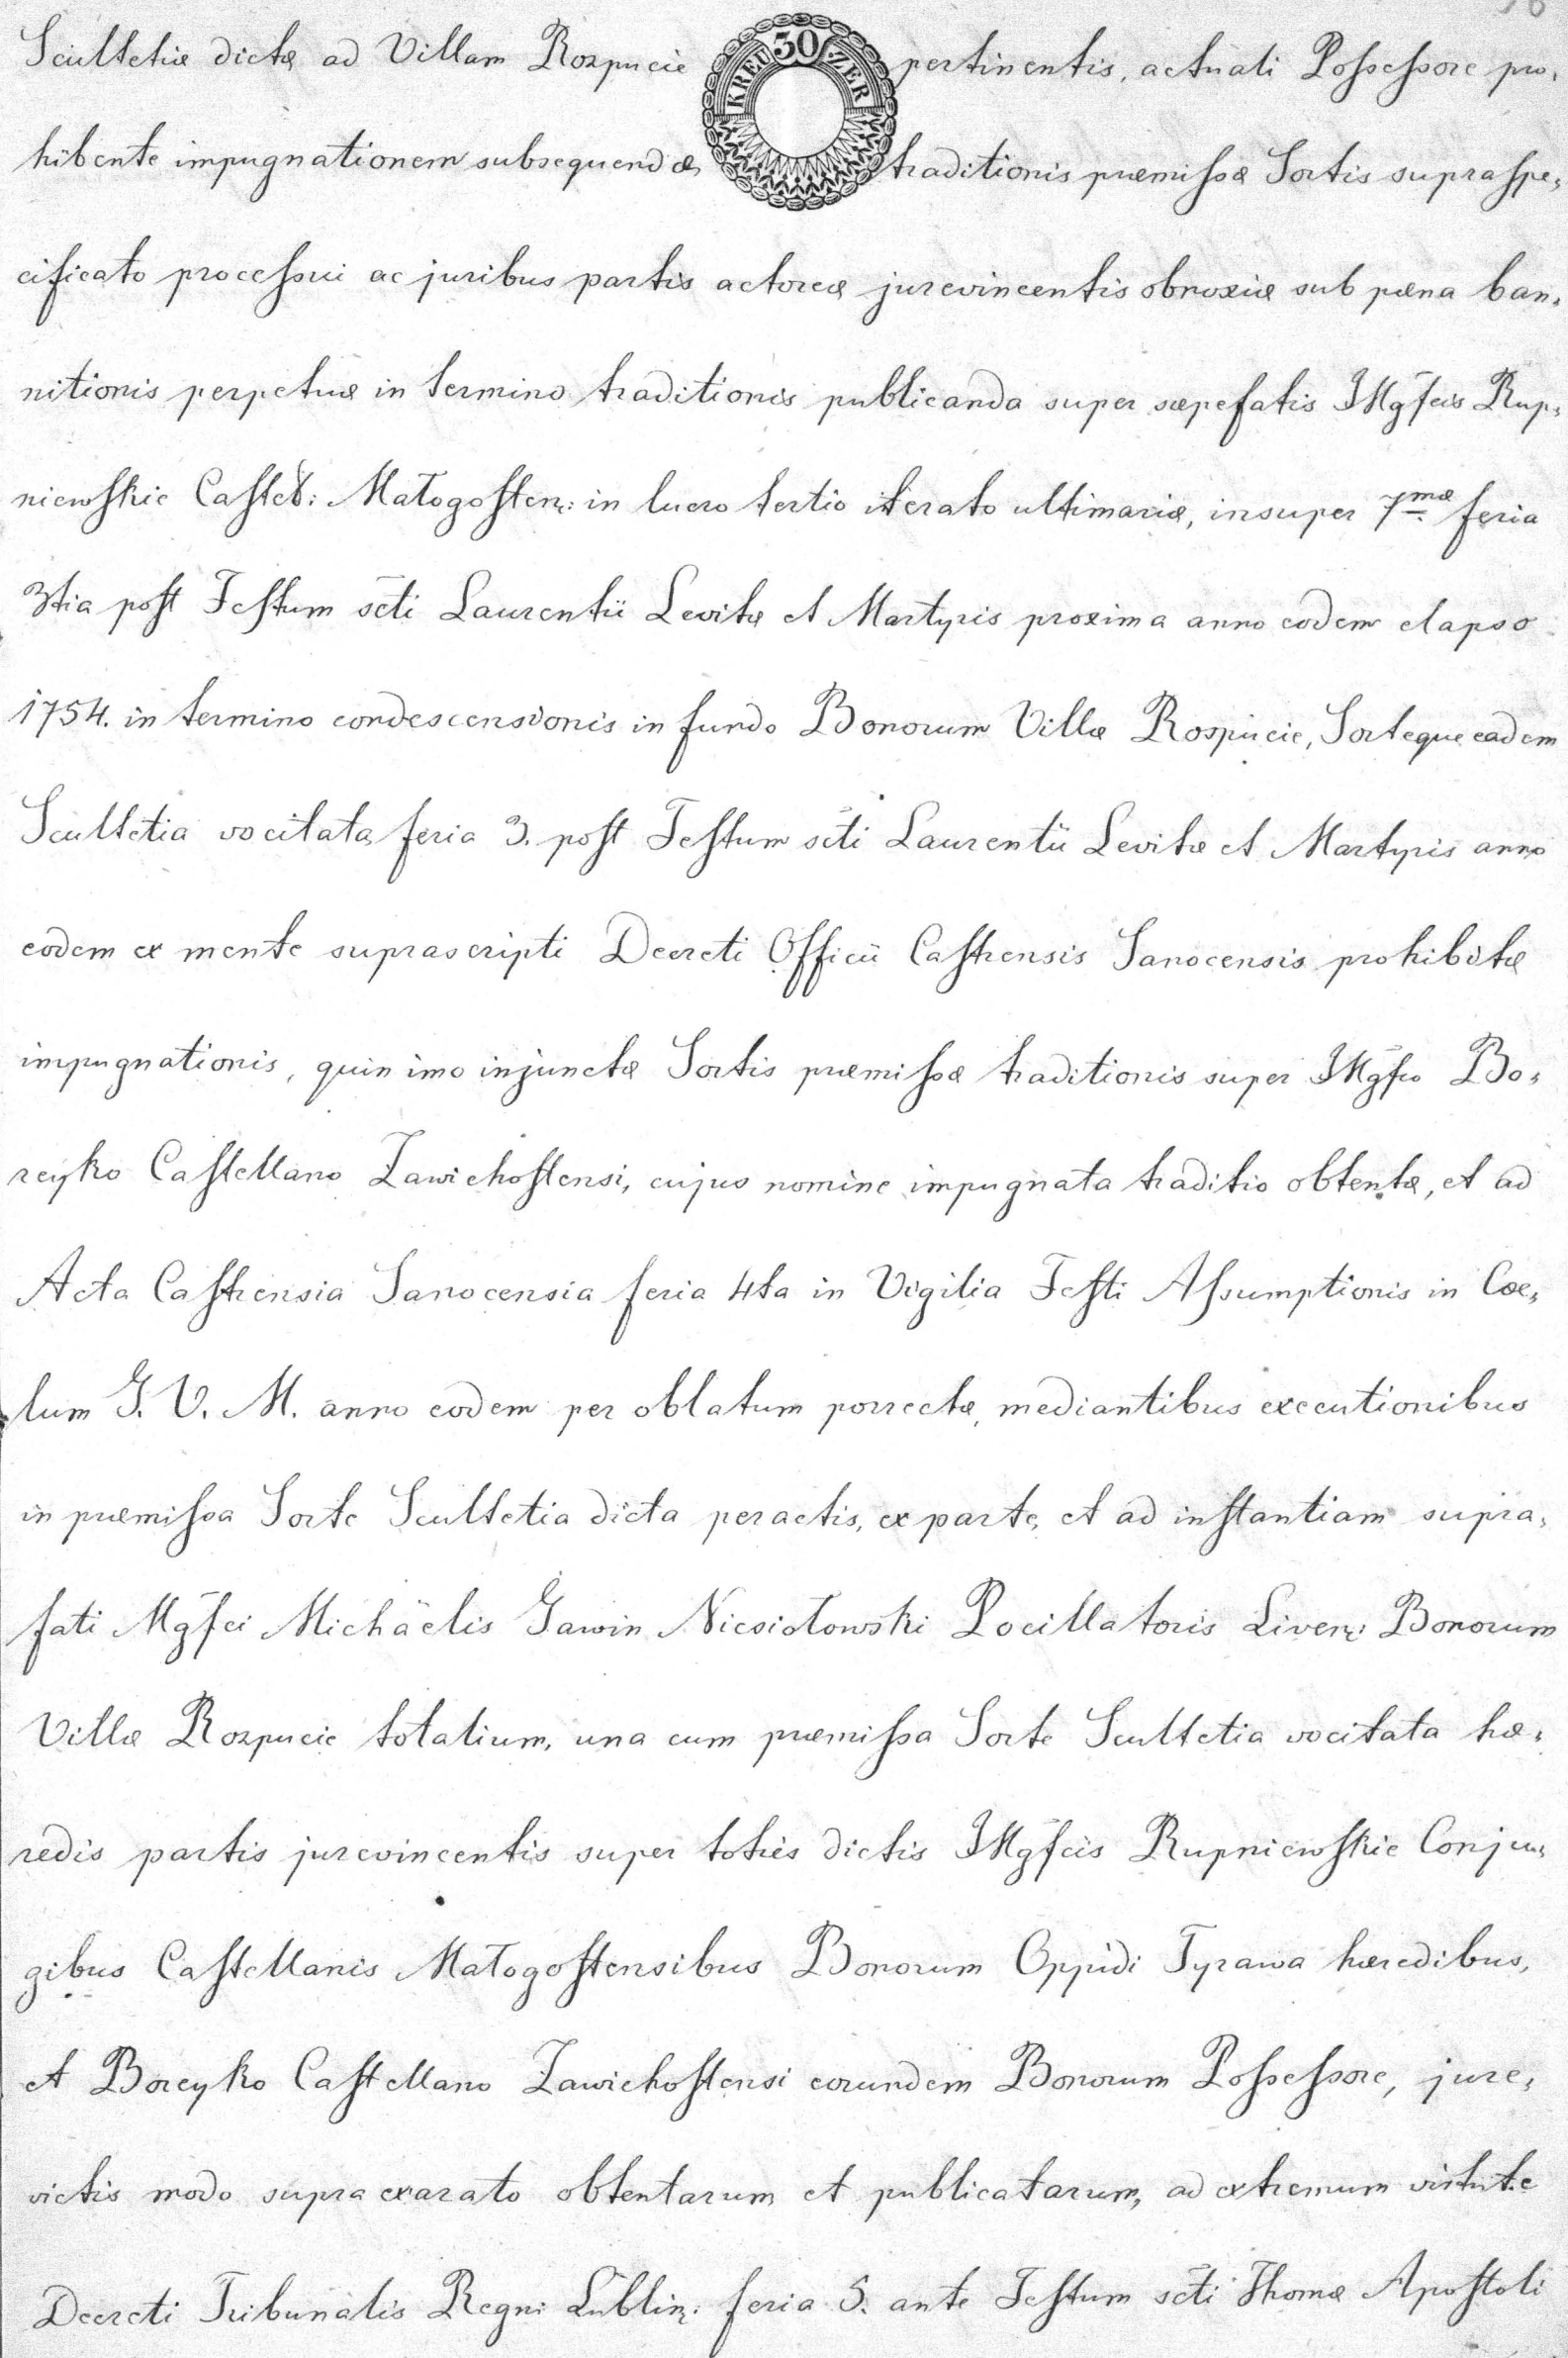 30 KREU ZER
Scultetiæ dictæ ad Villam Rozpucie pertinentis, actuali Possessore pro,
hibente impugnationem subsequendæ traditionis præmissæ Sortis supraspe,
cificato processui ac juribus partis actoreæ jurevincentis obnoxiæ sub pæna ban,
nitionis perpetuæ in termino traditionis publicanda super sæpefatis JMgfcis Rup,
niewskie Castell: Małogosten: in lucro tertio iterato ultimariæ, insuper 7mæ feria
3tia post Festum scti Laurentii Levitæ et Martyris proxima anno eodem elapso
1754. in termino condescensionis in fundo Bonorum Villæ Rospucie, Sorteque eadem
Scultetia vocitata feria 3. post Festum scti Laurentii Levitæ et Martyris anno
eodem ex mente suprascripti Decreti Officii Castrensis Sanocensis prohibitæ
impugnationis, quin imo injunctæ Sortis præmissæ traditionis super JMgfco Bo,
reyko Castellano Zawichostensi, cujus nomine impugnata traditio obtentæ, et ad
Acta Castrensia Sanocensia feria 4ta in Vigilia Festi Assumptionis in Cœ,
lum G. V. M. anno eodem per oblatum porrectæ, mediantibus executionibus
in præmissa Sorte Scultetia dicta peractis, ex parte et ad instantiam supra,
fati Mgfci Michäelis Gawin Niesiołowski Pocillatoris Liven: Bonorum
Villæ Rozpucie totalium, una cum præmissa Sorte Scultetia vocitata hæ,
redis partis jurevincentis super toties dictis JMgfcis Rupniewskie Conju,
gibus Castellanis Małogostensibus Bonorum Oppidi Tyrawa hæredibus,
et Boreyko Castellano Zawichostensi eorundem Bonorum Possessore, jure,
victis modo supra exarato obtentarum et publicatarum, ad extremum virtute
Decreti Tribunalis Regni Lublin: feria 5. ante Festum scti Thomæ Apostoli